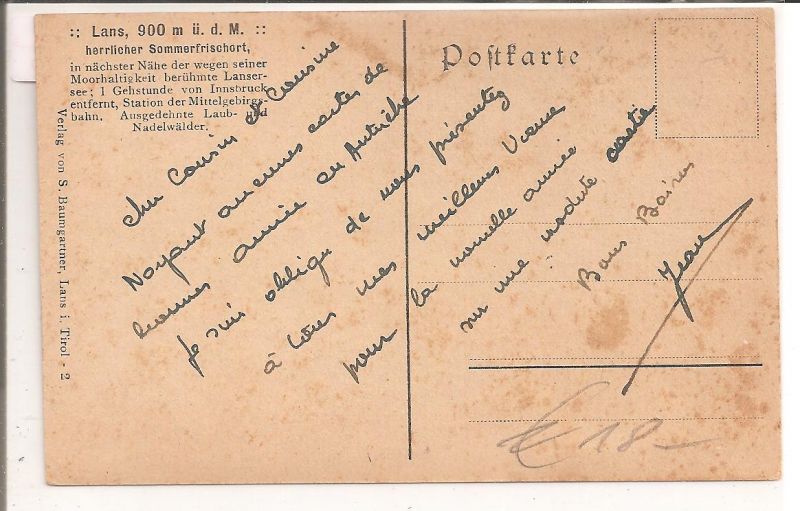 :: Lans, 900 m ü. d. M. ::
herrlicher Sommerfrischort,
in nächster Nähe der wegen seiner
Moorhaltigkeit berühmte Lanser-
see; 1 Gehstunde von Innsbruck
entfernt, Station der Mittelgebirgs-
bahn. Ausgedehnte Laub- und
Nadelwälder.
Verlag von S. Baumgartner, Lans i. Tirol - 2
Postkarte
Cher Cousin et Cousine
N'ayant aucunes cartes de
bonnes année en Autriche
Je suis obligé de vous présentez
à tous mes meilleurs Vœux
pour la nouvelle année
sur une modeste carte
Bons Baisers
Jean
€ 18-